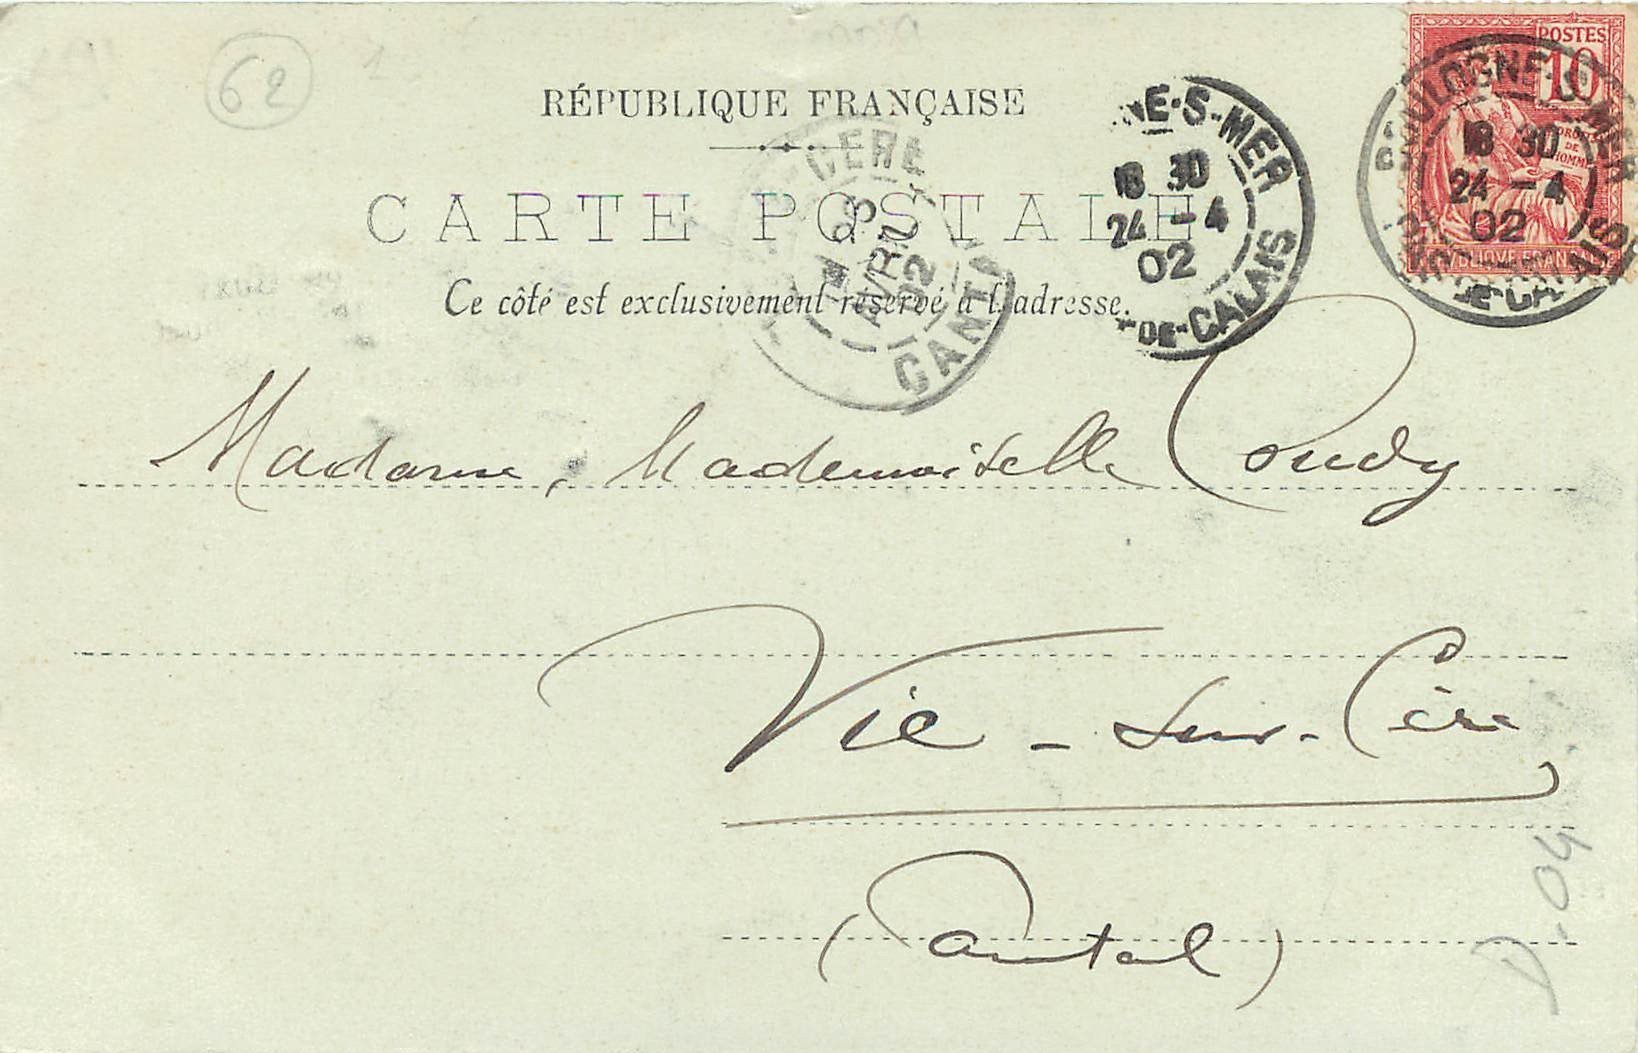 62
RÉPUBLIQUE FRANÇAISE
CARTE POSTALE
Ce côté est exclusivement réservé à l'adresse.
POSTES
10
DROITS
DE
L'HOMME
RÉPUBLIQUE FRANÇAISE
BOULOGNE-S-MER
18 30
24 -4
02
PAS-DE-CALAIS
NE-S-MER
18 30
24 -4
02
DE-CALAIS
CERE
AVRIL
02
CANTAL
Madame, Mademoiselle Coudy
Vic-sur-Cère
(Cantal)
D.04